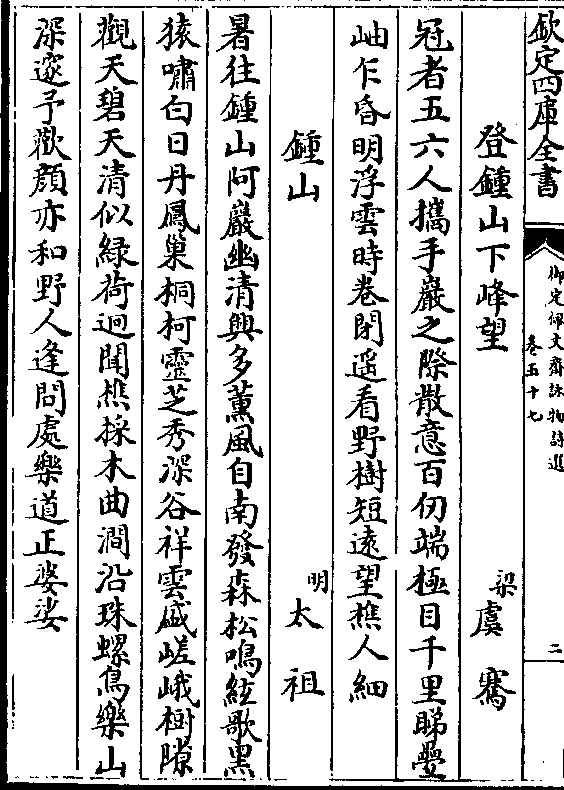 欽定四庫全書
御定佩文齋詠物詩選
卷五十七
二
登鍾山下峰望
梁虞騫
冠者五六人攜手巖之際散意百仞端極目千里睇疊
岫乍昏明浮雲時卷閉遥看野樹短遠望樵人細
鍾山
明太祖
暑往鍾山阿巖幽清興多薰風自南發森松鳴絃歌黑
猿嘯白日丹鳳巢桐柯靈芝秀深谷祥雲盛嵯峨樹隙
觀天碧天清似緑荷迥聞樵採木曲澗沿珠螺鳥樂山
深邃予歡顔亦和野人逢問處樂道正婆娑